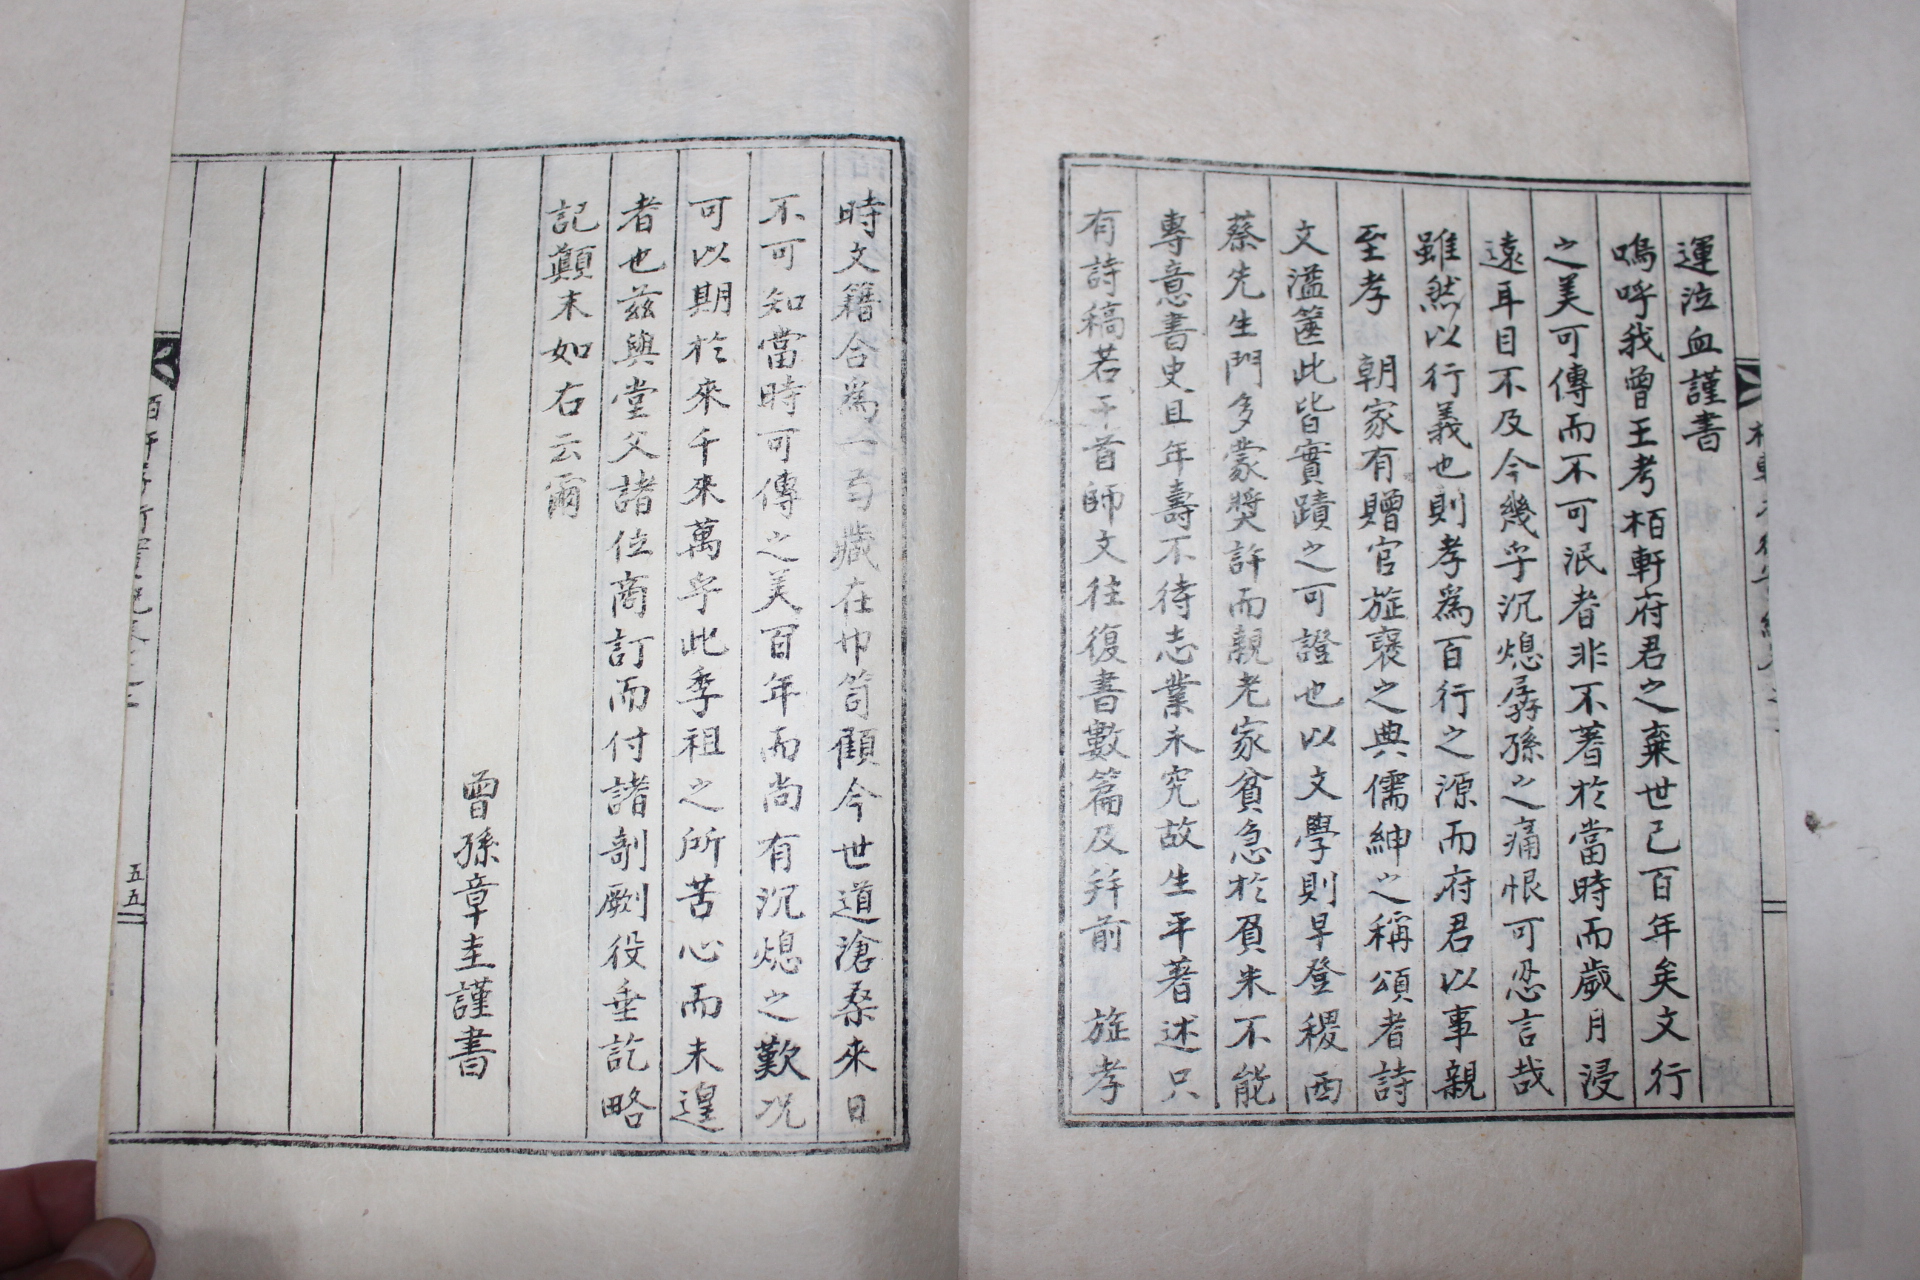 運泣血謹書
嗚呼我曾王考栢軒府君之棄世已百年矣文行
之美可傳而不可泯者非不著於當時而歲月浸
遠耳目不及今幾乎沉熄孱孫之痛恨可忍言哉
雖然以行義也則孝爲百行之源而府君以事親
至孝 朝家有贈官旌褒之典儒紳之稱頌者詩
文溢篋此皆實蹟之可證也以文學則早登稷西
蔡先生門多蒙奬許而親老家貧急於負米不能
專意書史且年壽不待志業未究故生平著述只
有詩稿若干首師文往復書數篇及幷前 旌孝
時文籍合爲 藏在巾笥顧今世道滄桑來日
不可知當時可傳之美百年而尚有沉熄之歎况
可以期於來千來萬乎此季祖之所苦心而未遑
者也茲與堂父諸位商訂而付諸剞劂役垂訖略
記顚末如右云爾
曾孫章圭謹書
五五